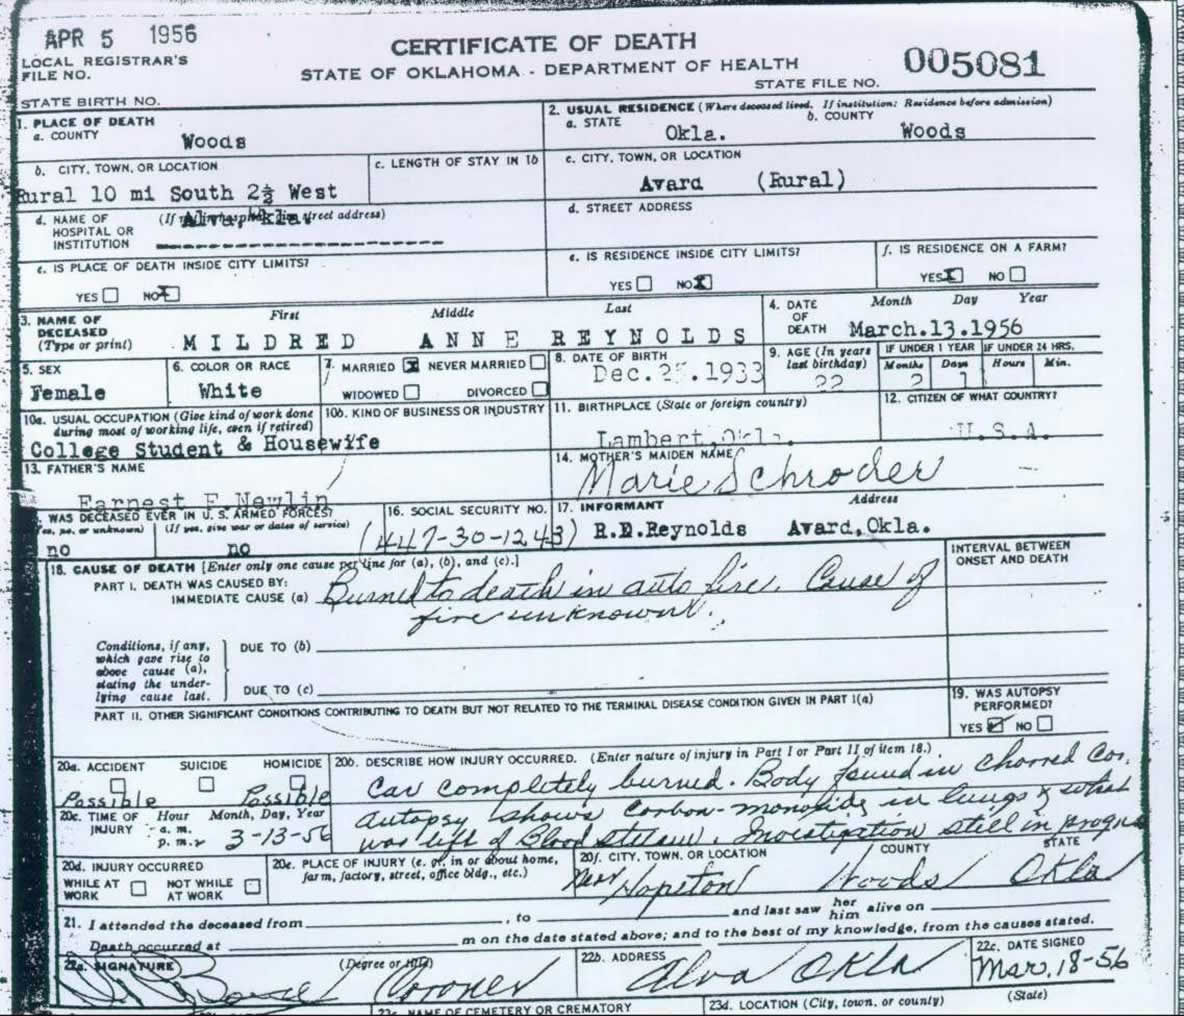 APR 5 1956
CERTIFICATE OF DEATH
LOCAL REGISTRAR'S
FILE NO.
STATE OF OKLAHOMA - DEPARTMENT OF HEALTH
005081
STATE FILE NO.
STATE BIRTH NO.
1. PLACE OF DEATH
a. COUNTY
Woods
2. USUAL RESIDENCE (Where deceased lived. If institution: Residence before admission)
a. STATE
Okla.
b. COUNTY
Woods
b. CITY, TOWN, OR LOCATION
Rural 10 mi South 2½ West
Alva, Okla.
c. LENGTH OF STAY IN 1b
c. CITY, TOWN, OR LOCATION
Avard (Rural)
d. NAME OF (If not in hospital, give street address)
HOSPITAL OR
INSTITUTION
d. STREET ADDRESS
e. IS PLACE OF DEATH INSIDE CITY LIMITS?
YES NO X
e. IS RESIDENCE INSIDE CITY LIMITS?
YES NO X
f. IS RESIDENCE ON A FARM?
YES X NO
3. NAME OF
DECEASED
(Type or print)
First Middle Last
MILDRED ANNE REYNOLDS
4. DATE
OF
DEATH
Month Day Year
March.13.1956
5. SEX
Female
6. COLOR OR RACE
White
7. MARRIED X NEVER MARRIED
WIDOWED DIVORCED
8. DATE OF BIRTH
Dec. 1933
9. AGE (In years
last birthday)
22
IF UNDER 1 YEAR
Months Days
2
IF UNDER 24 HRS.
Hours Min.
10a. USUAL OCCUPATION (Give kind of work done
during most of working life, even if retired)
College Student & Housewife
10b. KIND OF BUSINESS OR INDUSTRY
11. BIRTHPLACE (State or foreign country)
Lambert, Okla.
12. CITIZEN OF WHAT COUNTRY?
U.S.A.
13. FATHER'S NAME
Earnest F Newlin
14. MOTHER'S MAIDEN NAME
Marie Schroder
WAS DECEASED EVER IN U. S. ARMED FORCES?
(Yes, no, or unknown) (If yes, give war or dates of service)
no no
16. SOCIAL SECURITY NO.
(447-30-1243)
17. INFORMANT Address
R.D.Reynolds Avard,Okla.
18. CAUSE OF DEATH [Enter only one cause per line for (a), (b), and (c).]
INTERVAL BETWEEN
ONSET AND DEATH
PART I. DEATH WAS CAUSED BY:
IMMEDIATE CAUSE (a) Burned to death in auto fire. Cause of
fire unknown.
Conditions, if any,
which gave rise to
above cause (a),
stating the under-
lying cause last.
DUE TO (b)
DUE TO (c)
PART II. OTHER SIGNIFICANT CONDITIONS CONTRIBUTING TO DEATH BUT NOT RELATED TO THE TERMINAL DISEASE CONDITION GIVEN IN PART I(a)
19. WAS AUTOPSY
PERFORMED?
YES NO
20a. ACCIDENT SUICIDE HOMICIDE
Possible Possible
20b. DESCRIBE HOW INJURY OCCURRED. (Enter nature of injury in Part I or Part II of item 18.)
Car completely burned. Body found in charred Car.
autopsy shows Carbon-monoxide in lungs & what
was left of Blood stream. Investigation still in
20c. TIME OF
INJURY
Hour Month, Day, Year
a. m.
p. m.
3-13-56
20d. INJURY OCCURRED
WHILE AT
WORK
NOT WHILE
AT WORK
20e. PLACE OF INJURY (e. g., in or about home,
farm, factory, street, office bldg., etc.)
20f. CITY, TOWN, OR LOCATION COUNTY STATE
Near Hopeton Woods Okla
21. I attended the deceased from , to and last saw her him alive on
Death occurred at m on the date stated above; and to the best of my knowledge, from the causes stated.
22a. SIGNATURE (Degree or title)
Coroner
22b. ADDRESS
Alva Okla
22c. DATE SIGNED
Mar. 18-56
23c. NAME OF CEMETERY OR CREMATORY
23d. LOCATION (City, town, or county) (State)